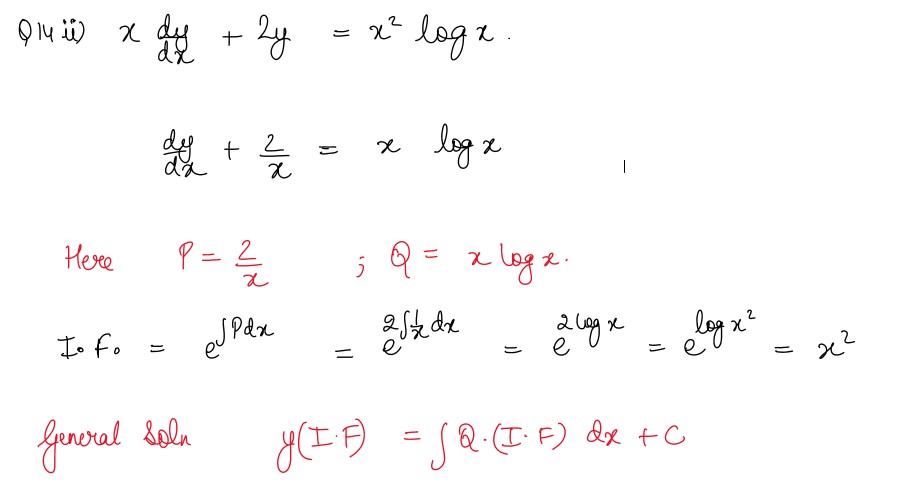 Q14 ii) x dy/dx + 2y = x² log x.
dy/dx + 2/x = x log x
Here P = 2/x ; Q = x log x.
I.F. = e^∫Pdx = e^2∫1/x dx = e^2log x = e^log x² = x²
General Soln y(I.F) = ∫Q.(I.F) dx + C